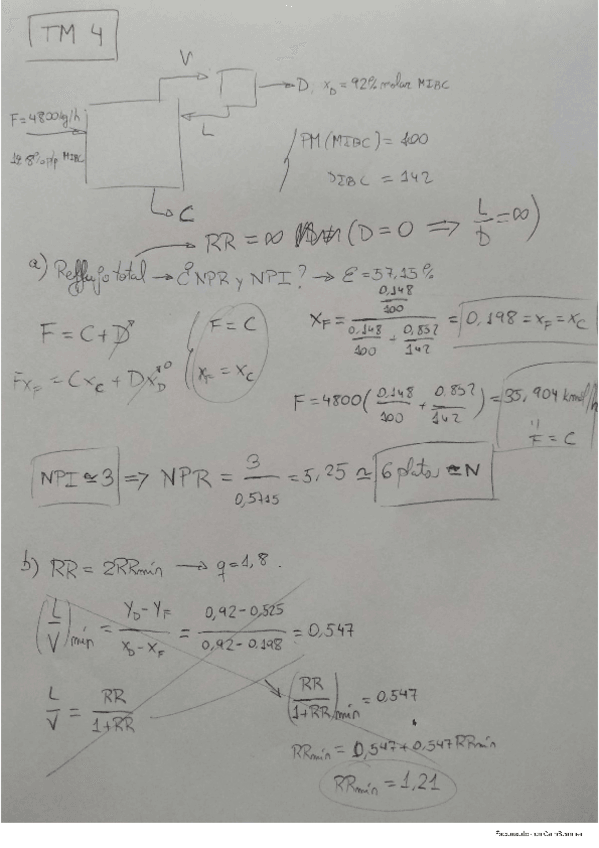 TM 4
V
D, x_D = 92% molar MIBC
F = 4800 kg/h
L
14.8% p/p MIBC
PM (MIBC) = 100
DIBC = 142
C
RR = ∞ (D = 0 ⟹ L/D = ∞)
a) Reflujo total → ¿NPR y NPI? → ε = 57,15%
F = C + D
F = C
x_F = (0,148/100) / (0,148/100 + 0,852/142) = 0,198 = x_F = x_C
F x_F = C x_C + D x_D → 0
x_F = x_C
F = 4800 (0,148/100 + 0,852/142) = 35,904 kmol/h
F = C
NPI ≃ 3 ⟹ NPR = 3/0,5715 = 5,25 ≃ 6 platos ≃ N
b) RR = 2RRmín → q = 1,8.
(L/V)mín = (y_D - y_F)/(x_D - x_F) = (0,92 - 0,525)/(0,92 - 0,198) = 0,547
L/V = RR/(1+RR)
(RR/(1+RR))mín = 0,547
RRmín = 0,547 + 0,547 RRmín
RRmín = 1,21